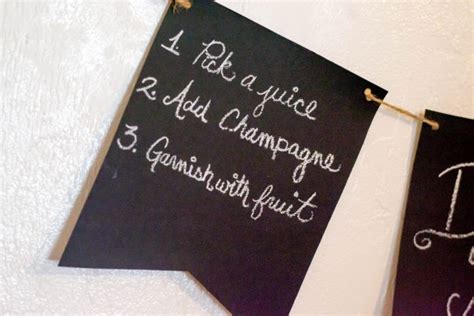 1. Pick a juice
2. Add Champagne
3. Garnish with fruit